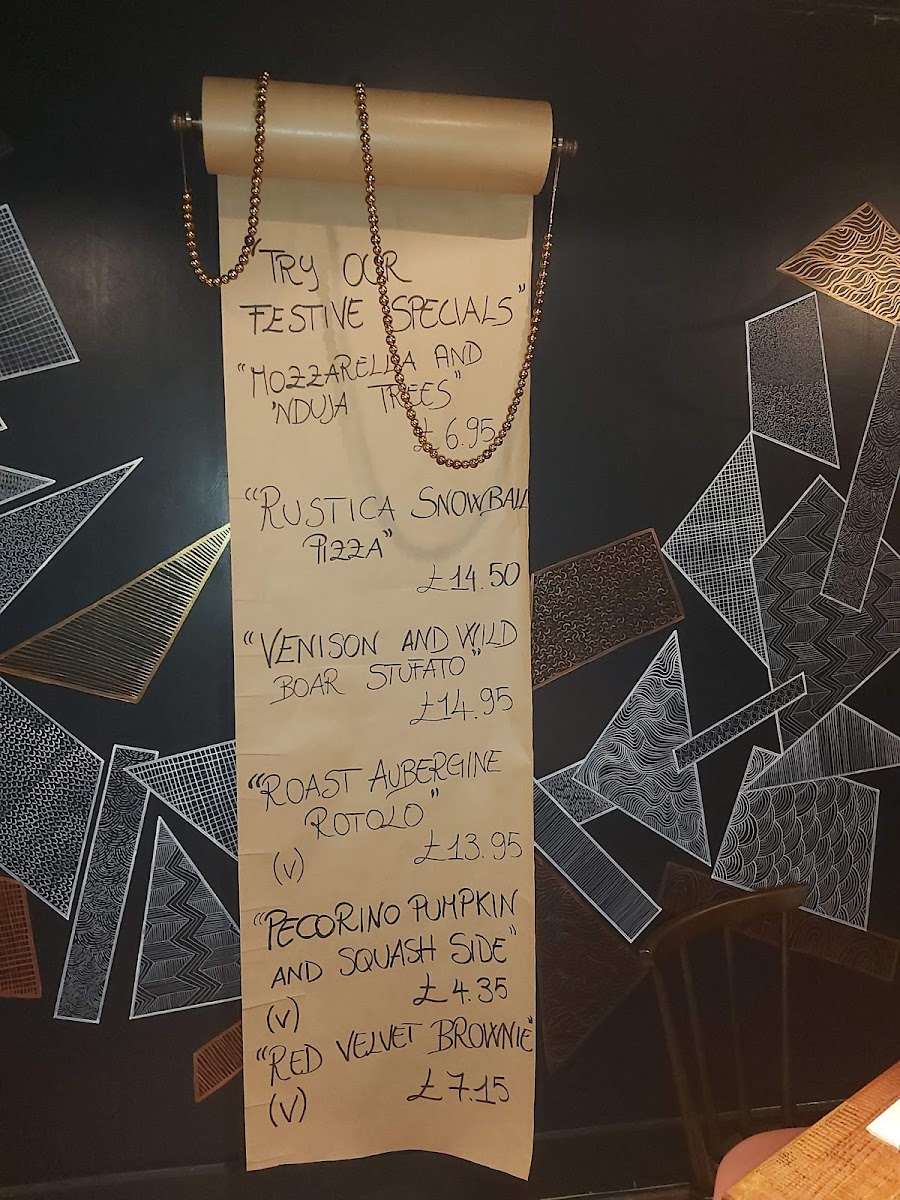 "TRY OUR
FESTIVE SPECIALS"
"MOZZARELLA AND
'NDUJA TREES"
£6.95
"RUSTICA SNOWBALL
PIZZA"
£14.50
"VENISON AND WILD
BOAR STUFATO"
£14.95
"ROAST AUBERGINE
ROTOLO"
£13.95
(V)
"PECORINO PUMPKIN
AND SQUASH SIDE"
£4.35
(V)
"RED VELVET BROWNIE"
£7.15
(V)